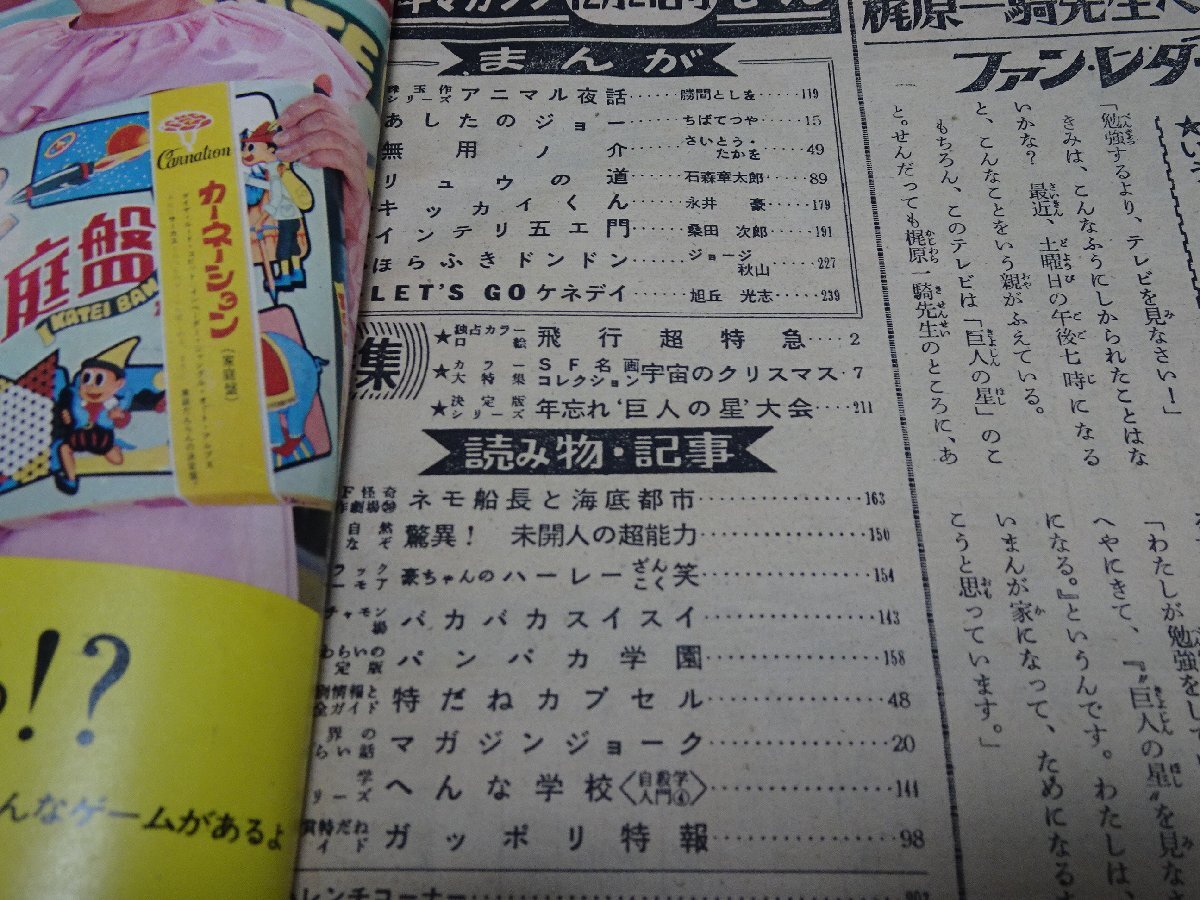 まんが
シリーズ アニマル夜話……勝間としを……119
あしたのジョー……ちばてつや……15
無用ノ介……さいとう・たかを……49
リュウの道……石森章太郎……89
キッカイくん……永井 豪……179
インテリ五エ門……桑田 次郎……191
ほらふきドンドン……ジョージ秋山……227
LET'S GO ケネデイ……旭丘 光志……239
集
★独占カラー口絵 飛行超特急……2
★カラー大特集 SF名画コレクション 宇宙のクリスマス・7
★決定版シリーズ 年忘れ‘巨人の星’大会……211
読み物・記事
ネモ船長と海底都市……163
自然 なぞ 驚異! 未開人の超能力……150
豪ちゃんのハーレーざんこく笑……154
バカバカスイスイ……143
わらいの定版 パンパカ学園……158
特だねカプセル……48
マガジンジョーク……20
へんな学校〈自殺学入門④〉……144
ガッポリ特報……98
梶原一騎先生へ
ファン・レター
「勉強するより、テレビを見なさい!」
きみは、こんなふうにしかられたことはな
いかな? 最近、土曜日の午後七時になる
と、こんなことをいう親がふえている。
もちろん、このテレビは「巨人の星」のこ
と。せんだっても梶原一騎先生のところに、あ
「わたしが勉強をして
へやにきて、『〝巨人の星〟を見な
になる。』というんです。わたしは、
いまんが家になって、ためになる
こうと思っています。」
Carnation
カーネーション
(家庭盤)
庭盤
KATEI BAN
!?
んなゲームがあるよ